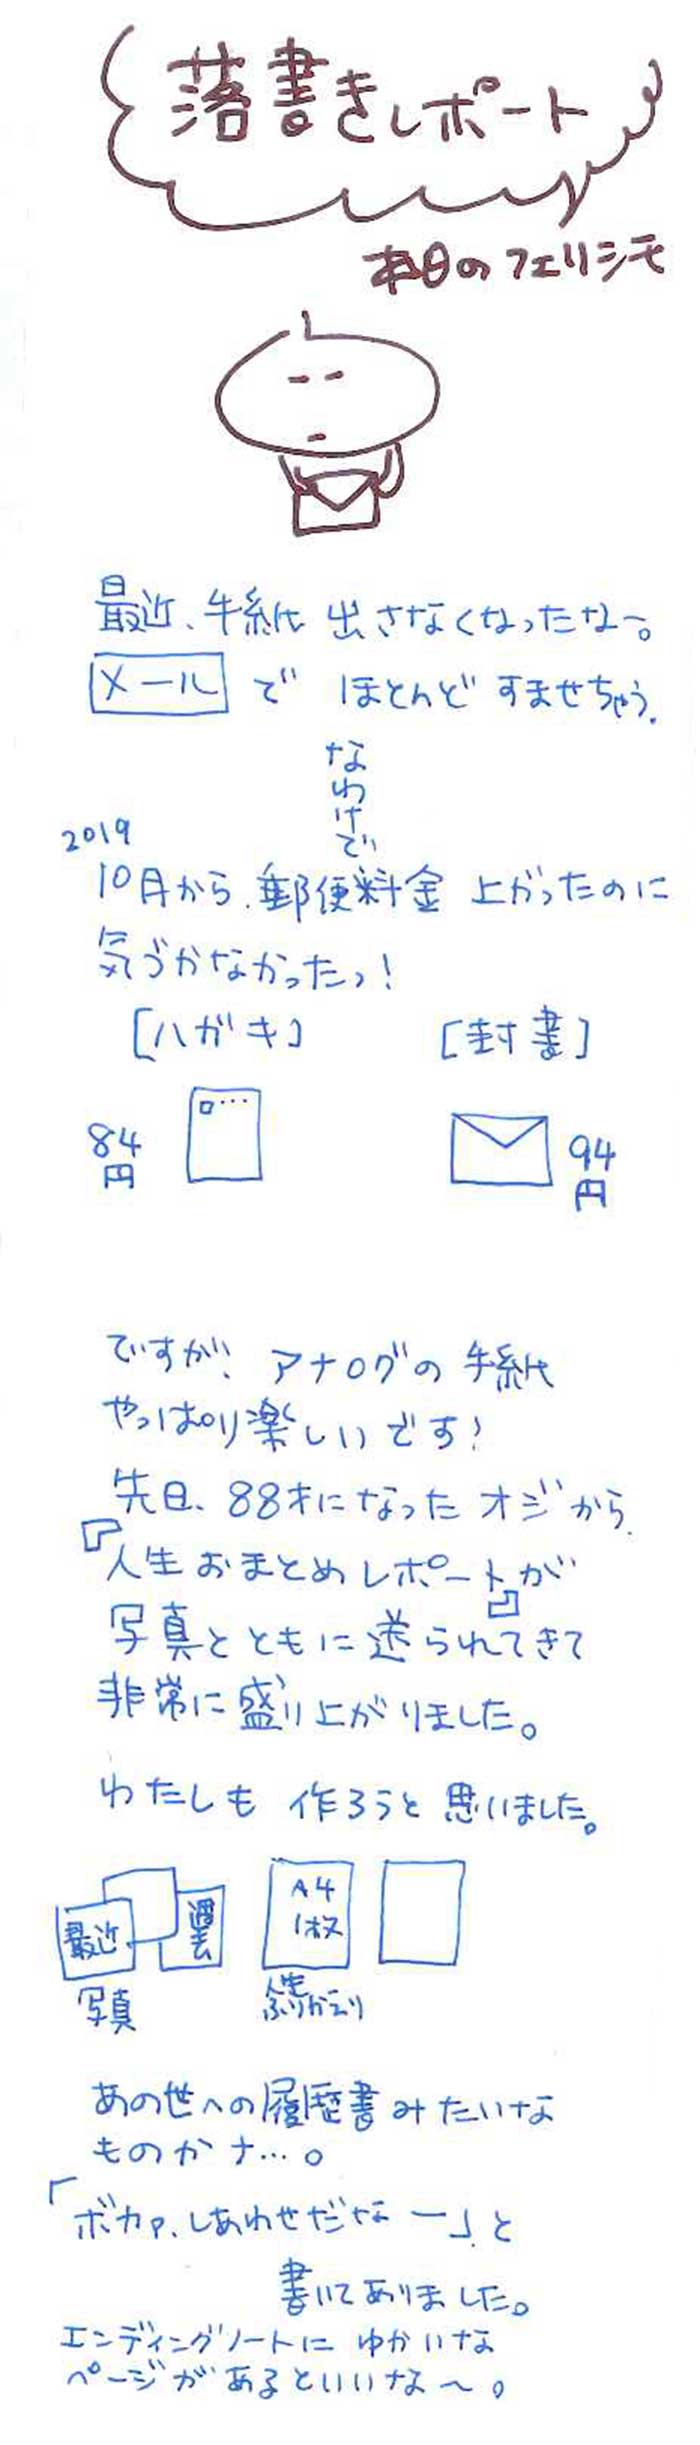 落書きレポート
本日のフェリシモ
最近、手紙出さなくなったな〜。
メールでほとんどすませちゃう。
なわけで
2019
10月から、郵便料金上がったのに
気づかなかったっ!
[ハガキ] [封書]
84円 94円
ですが、アナログの手紙
やっぱり楽しいです!
先日、88才になったオジから、
『人生おまとめレポート』が
写真とともに送られてきて
非常に盛り上がりました。
わたしも作ろうと思いました。
最近 過去 A4 1枚
写真 人生ふりかえり
あの世への履歴書みたいな
ものかナ…。
「ボカァ、しあわせだなー」と
書いてありました。
エンディングノートにゆかいな
ページがあるといいな〜。